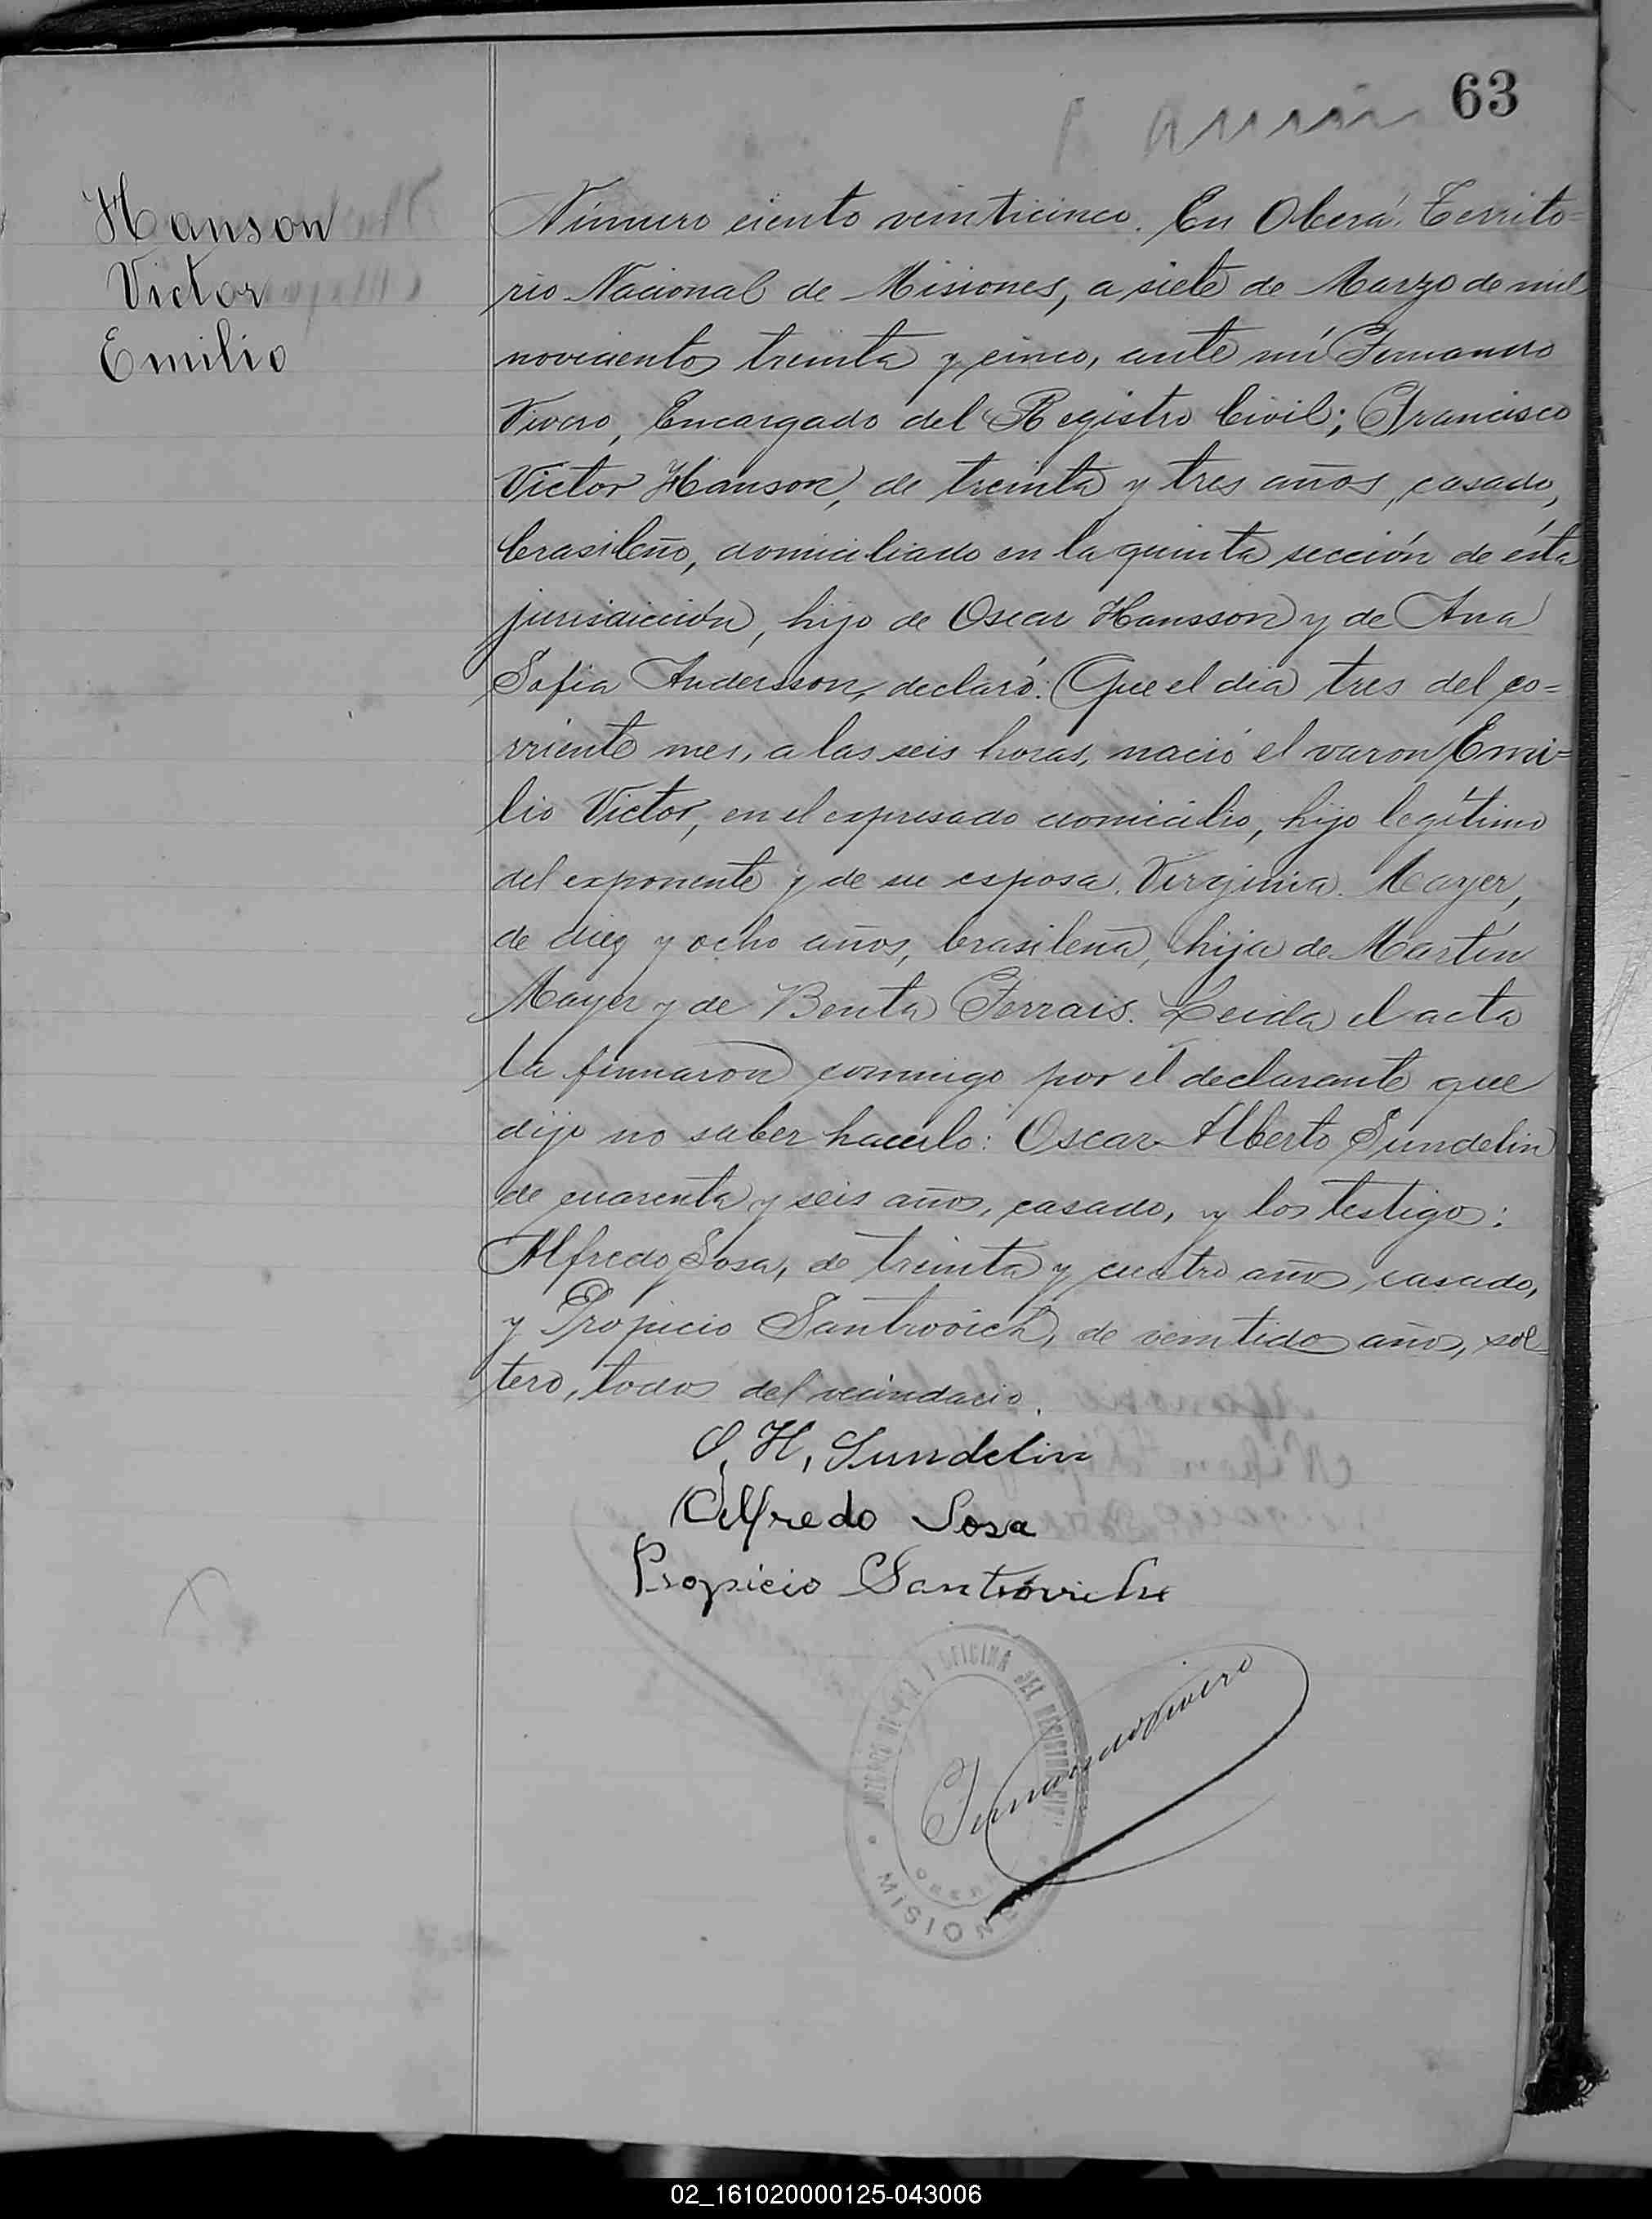 63
Hanson
Victor
Emilio
Número ciento veinticinco. En Oberá, Territo=
rio Nacional de Misiones, a siete de Marzo de mil
novecientos treinta y cinco, ante mí Fernando
Vivero, Encargado del Registro Civil; Francisco
Victor Hanson, de treinta y tres años, casado,
brasileño, domiciliado en la quinta sección de ésta
jurisdicción, hijo de Oscar Hansson y de Ana
Sofia Andersson, declaró: Que el dia tres del co=
rriente mes, a las seis horas, nació el varon Emi=
lio Victor, en el expresado domicilio, hijo legítimo
del exponente y de su esposa Virginia Mayer,
de diez y ocho años, brasileña, hija de Martín
Mayer y de Benta Ferrais. Leida el acta
la firmaron conmigo por el declarante que
dijo no saber hacerlo: Oscar Alberto Sundelin
de cuarenta y seis años, casado, y los testigos:
Alfredo Sosa, de treinta y cuatro años, casado,
y Propicio Santrovich, de veintidos años, sol=
tero, todos del vecindario.
O. H. Sundelin
Alfredo Sosa
Propicio Santrovich
JUZGADO DE PAZ Y OFICINA DEL REGISTRO CIVIL
Fernando Vivero
OBERA
MISIONES
02_161020000125-043006